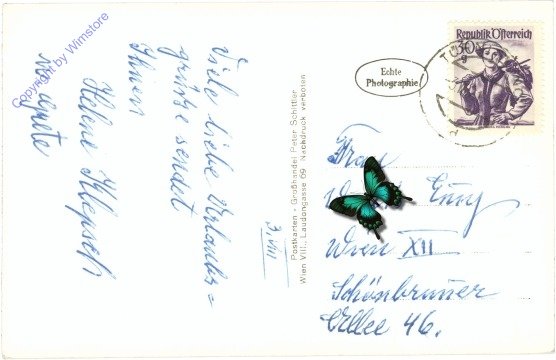 Copyright by Wimstore
Viele liebe Urlaubs=
grüße sendet
Ihnen
Helene
3. VIII
Postkarten - Großhandel Peter Schittler
Wien VIII., Laudongasse 69 Nachdruck verboten
Echte
Photographie
Republik Österreich
30
Frau
Wien XII
Schönbrunner
Allee 46.